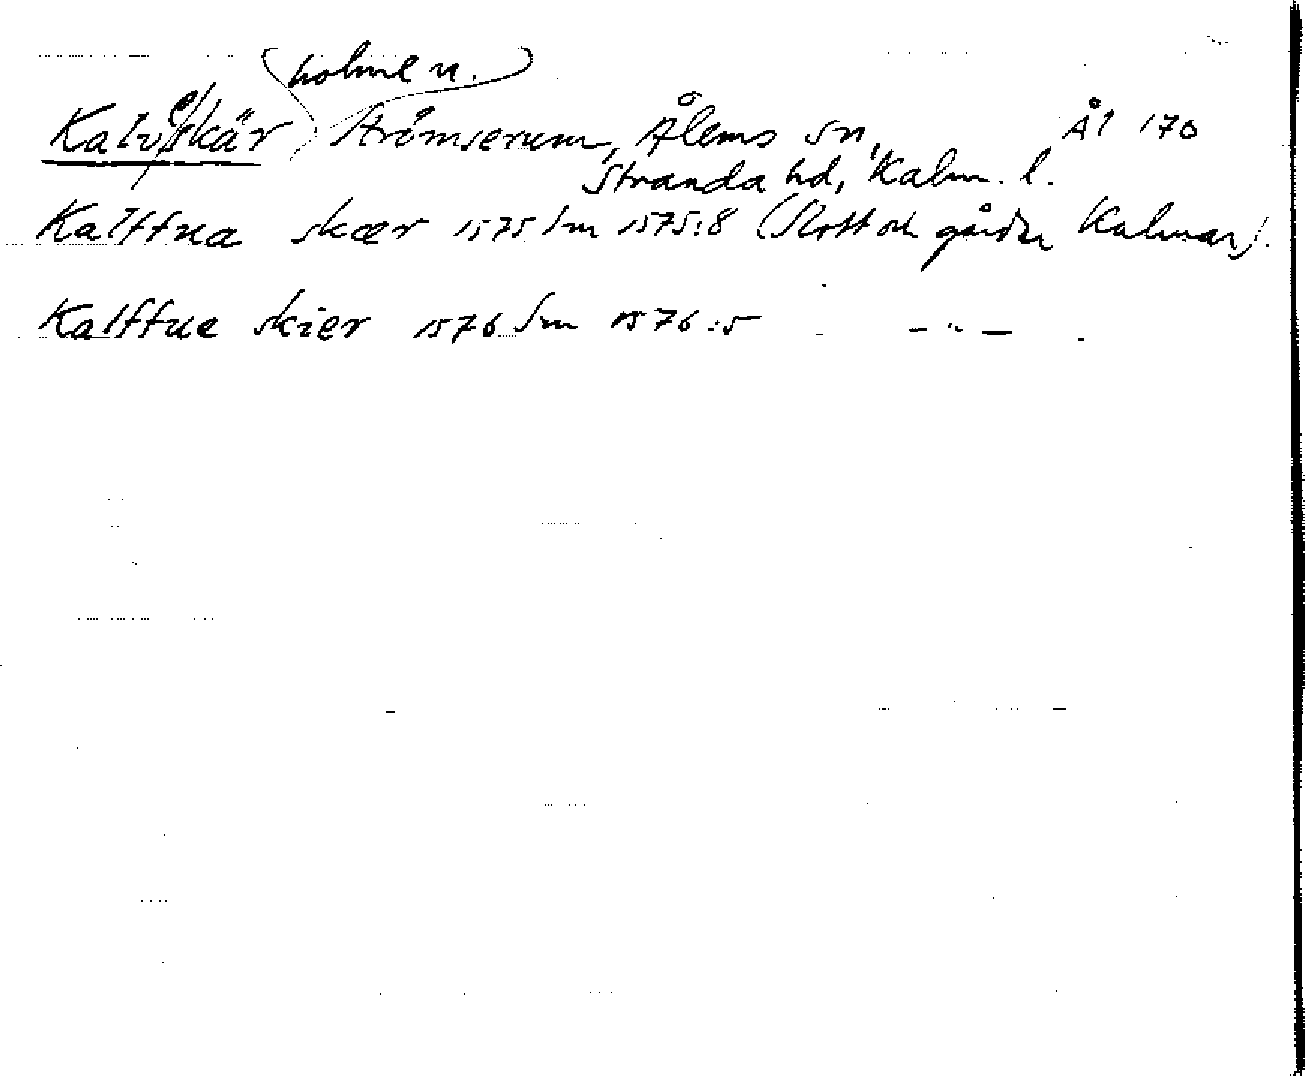 holme n.
Kalveskär Strömserum, Ålems sn, Ål 170
Stranda hd, Kalm. l.
Kalffua skær 1575 Sm 1575:8 (Slott och gårdar Kalmar).
Kalffue skier 1576 Sm 1576:5 — " —